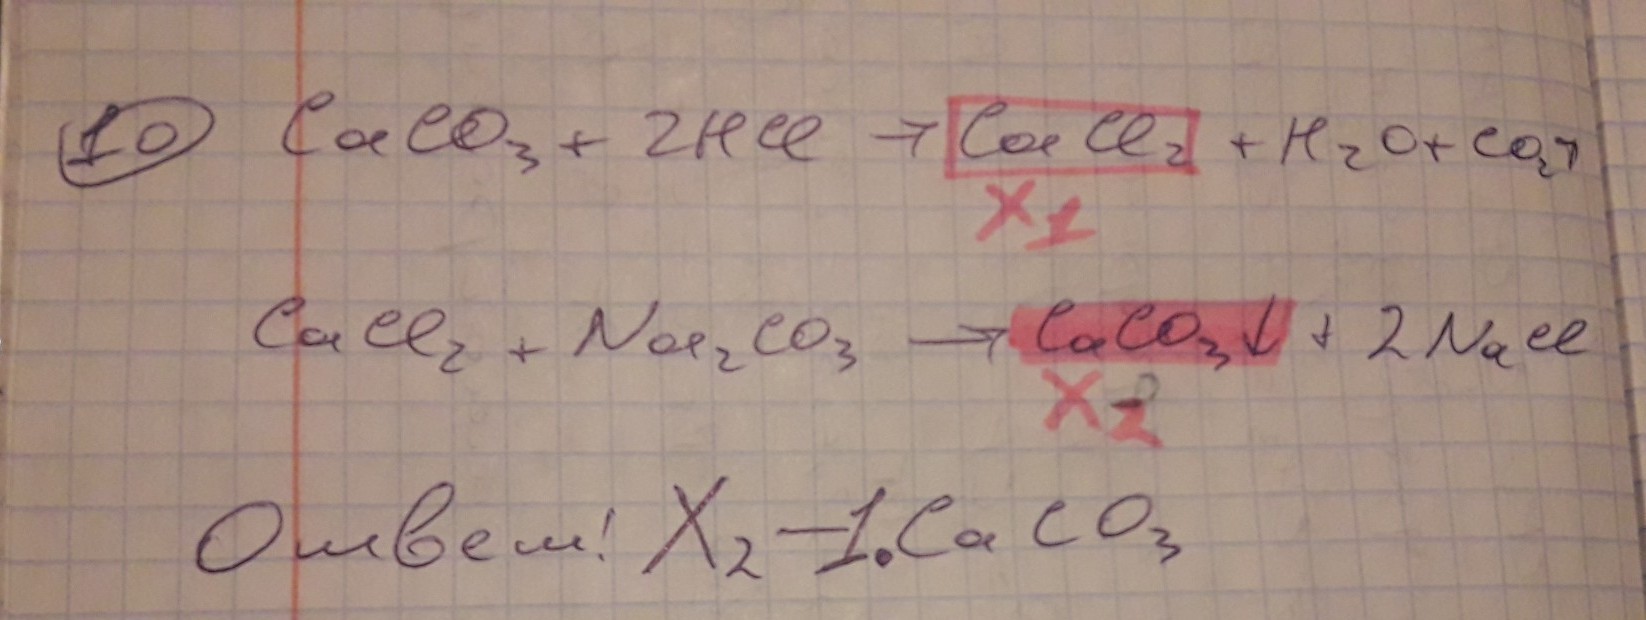 10 CaCO₃ + 2HCl → CaCl₂ + H₂O + CO₂↑
X1
CaCl₂ + Na₂CO₃ → CaCO₃↓ + 2NaCl
X2
Ответ: X₂ – 1. CaCO₃